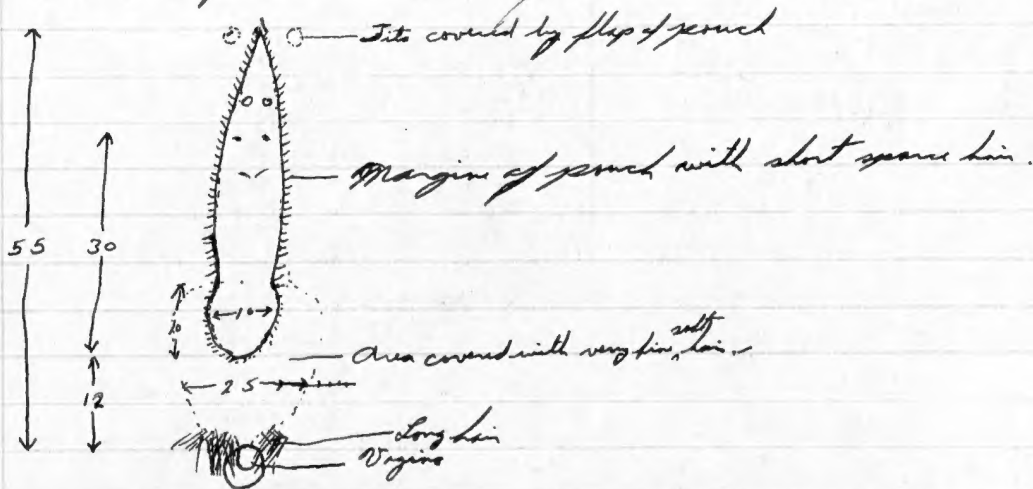 Tits covered by flap of pouch
Margine of pouch with short sparce hair.
55
30
10
20
Area covered with very fine soft hair.
25
12
Long hair
Vagina